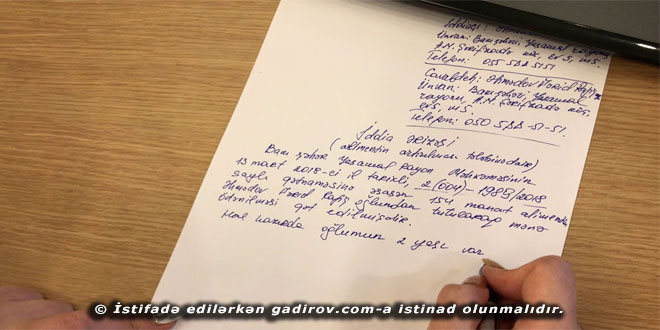 İddiaçı: Əhmədova
Ünvan: Bakı şəhəri, Yasamal rayonu,
A.N. Şərifzadə küç, ev 5, m.5.
Telefon: 055 588 51 51
Cavabdeh: Əhmədov Fərid Rafiq
Ünvan: Bakı şəhəri, Yasamal
rayonu, A.N. Şərifzadə küç,
ev 5, m.5.
Telefon: 050 588-51-51.
İddia ərizəsi
(alimentin artırılması tələbinə dair)
Bakı şəhər Yasamal rayon Məhkəməsinin
13 mart 2018-ci il tarixli, 2(004)-1988/2018
saylı qətnaməsinə əsasən 154 manat alimentin
Əhmədov Fərid Rafiq oğlundan tutularaq mənə
ödənilməsi qət edilmişdir.
Hal hazırda oğlumun 2 yaşı var
© İstifadə edilərkən gadirov.com-a istinad olunmalıdır.